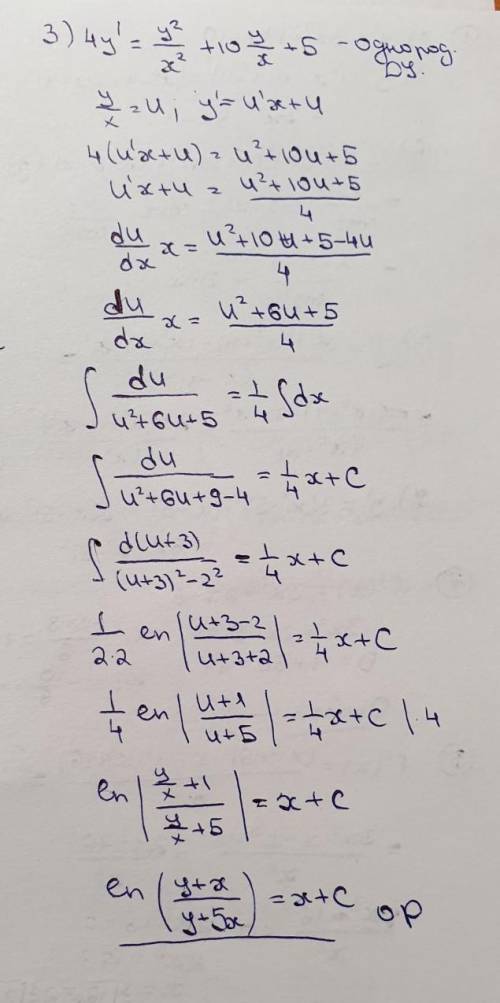 3) 4y' = y²/x² + 10 y/x + 5 - однород. ДУ.
y/x = u, y' = u'x + u
4(u'x + u) = u² + 10u + 5
u'x + u = (u² + 10u + 5)/4
du/dx x = (u² + 10u + 5 - 4u)/4
du/dx x = (u² + 6u + 5)/4
∫ du/(u² + 6u + 5) = 1/4 ∫ dx
∫ du/(u² + 6u + 9 - 4) = 1/4 x + C
∫ d(u+3)/((u+3)² - 2²) = 1/4 x + C
1/(2·2) ln |(u+3-2)/(u+3+2)| = 1/4 x + C
1/4 ln |(u+1)/(u+5)| = 1/4 x + C | · 4
ln |(y/x + 1)/(y/x + 5)| = x + C
ln ((y+x)/(y+5x)) = x + C ОР